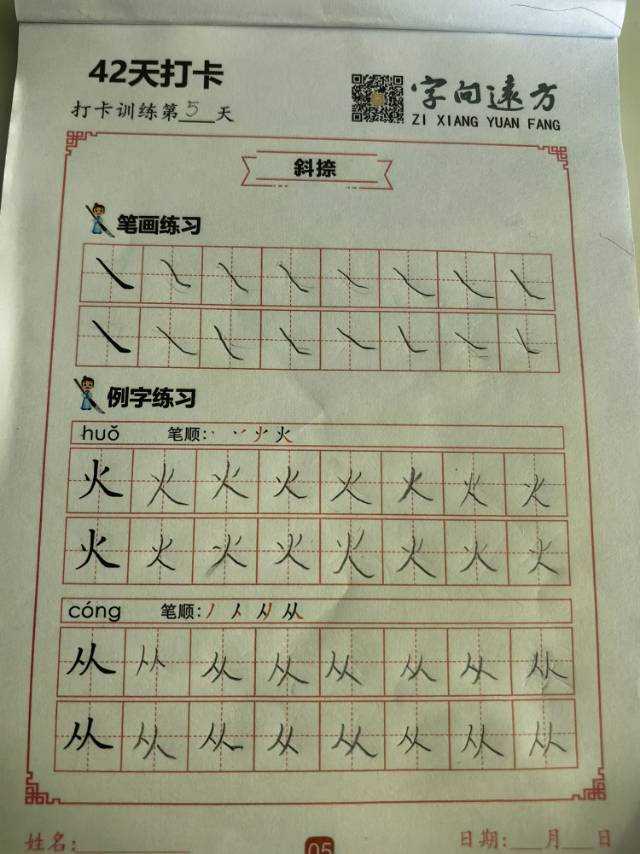 42天打卡
打卡训练第5天
字向远方
ZI XIANG YUAN FANG
斜捺
笔画练习
㇏ ㇏ ㇏ ㇏ ㇏ ㇏ ㇏ ㇏
㇏ ㇏ ㇏ ㇏ ㇏ ㇏ ㇏ ㇏
例字练习
huǒ 笔顺: 火
火 火 火 火 火 火 火 火
火 火 火 火 火 火 火 火
cóng 笔顺: 丿 人 从
从 从 从 从 从 从 从 从
从 从 从 从 从 从 从 从
姓名: 05 日期: 月 日